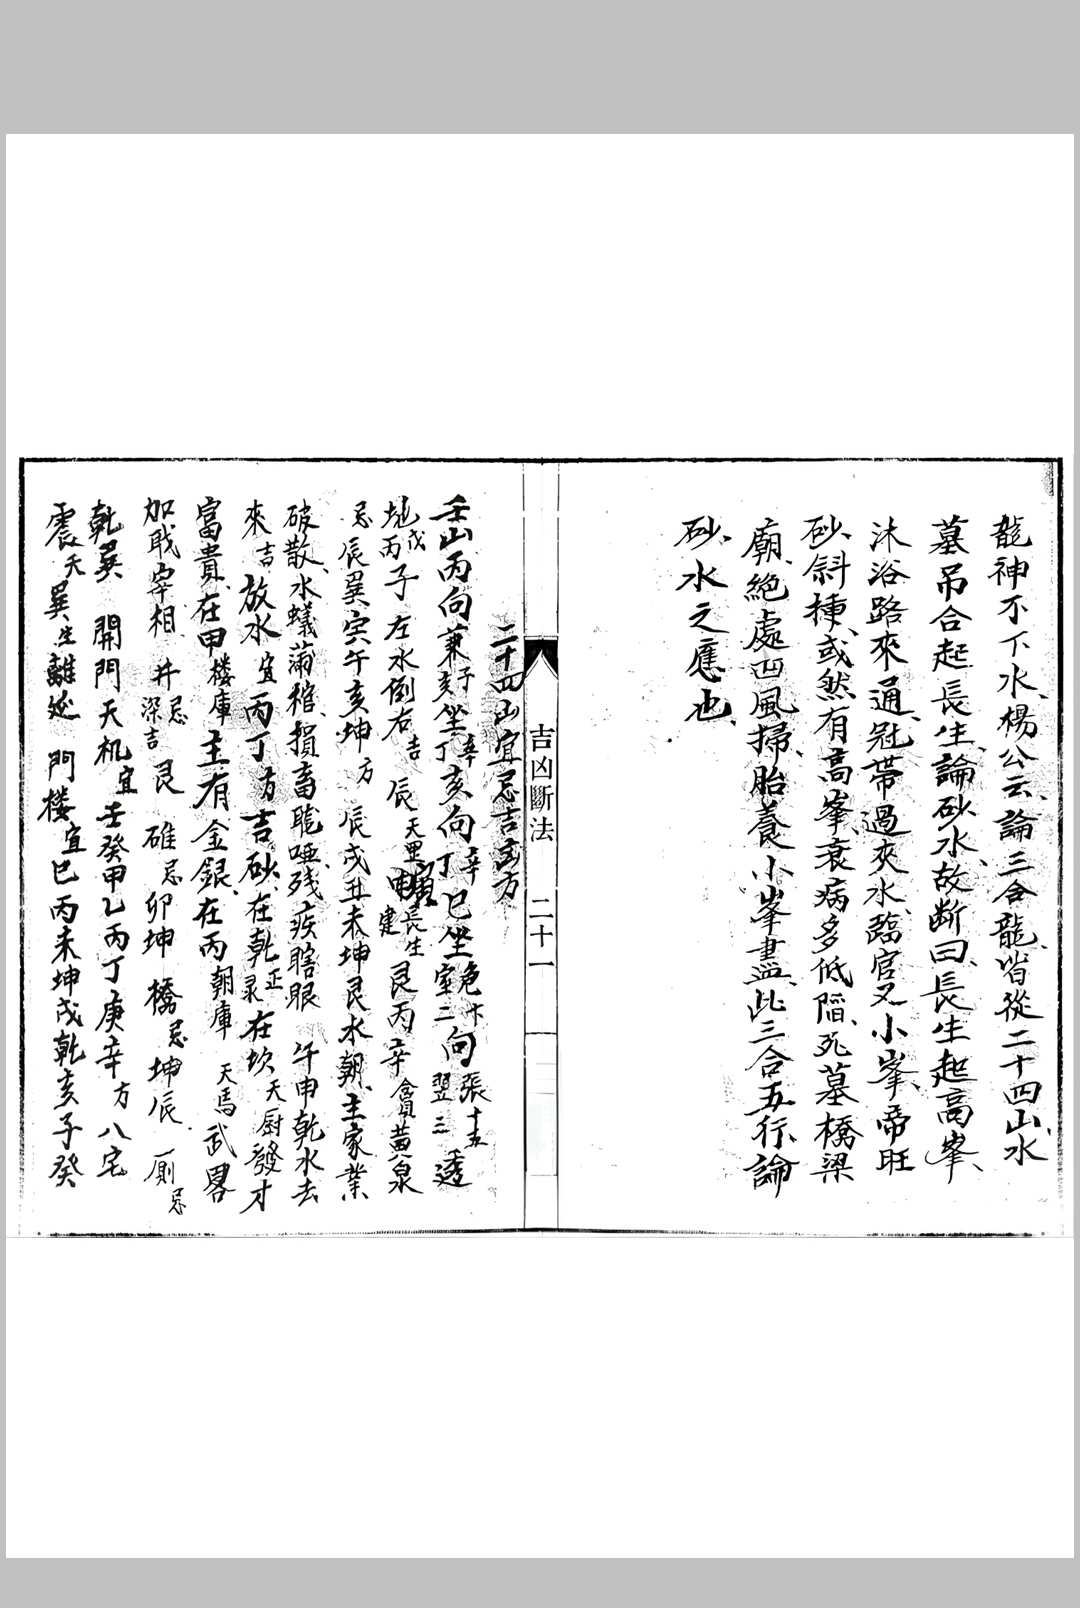 龍神不下水、楊公云、論三合龍、皆從二十四山水
墓吊合起長生、論砂水、故断曰、長生起高峯、
沐浴路來通、冠帶過夾水、臨官又小峯、帝旺
砂、斜揷、或然有高峯、衰病多低陷、死墓橋梁
廟、絕處凹風掃、胎養小峯盡、此三合五行、論
砂、水之應也、
吉凶斷法
二十一
二十四山宜忌吉方
壬山丙向兼子亥坐丁辛亥向丁辛巳坐危室二向張翌三十五透
地戊丙子 左水倒右吉 辰天里 長生 建 艮丙辛 貪黃泉
忌辰巽寅午亥坤方 辰戌丑未坤艮水朝、主家業
破散、水蟻滿棺、損畜聾啞、殘疾瞎眼 午申乾水去
來吉 放水宜丙丁方吉砂、在乾正录在坎天厨發才
富貴、在甲楼庫主有金銀、在丙朝庫 天馬武畧
加戢宰相 井忌深吉艮 碓忌卯坤 橋忌坤辰 厠忌
乾巽 開門天机宜壬癸甲乙丙丁庚辛方 八宅
震天巽生離延 門楼宜巳丙未坤戌乾亥子癸